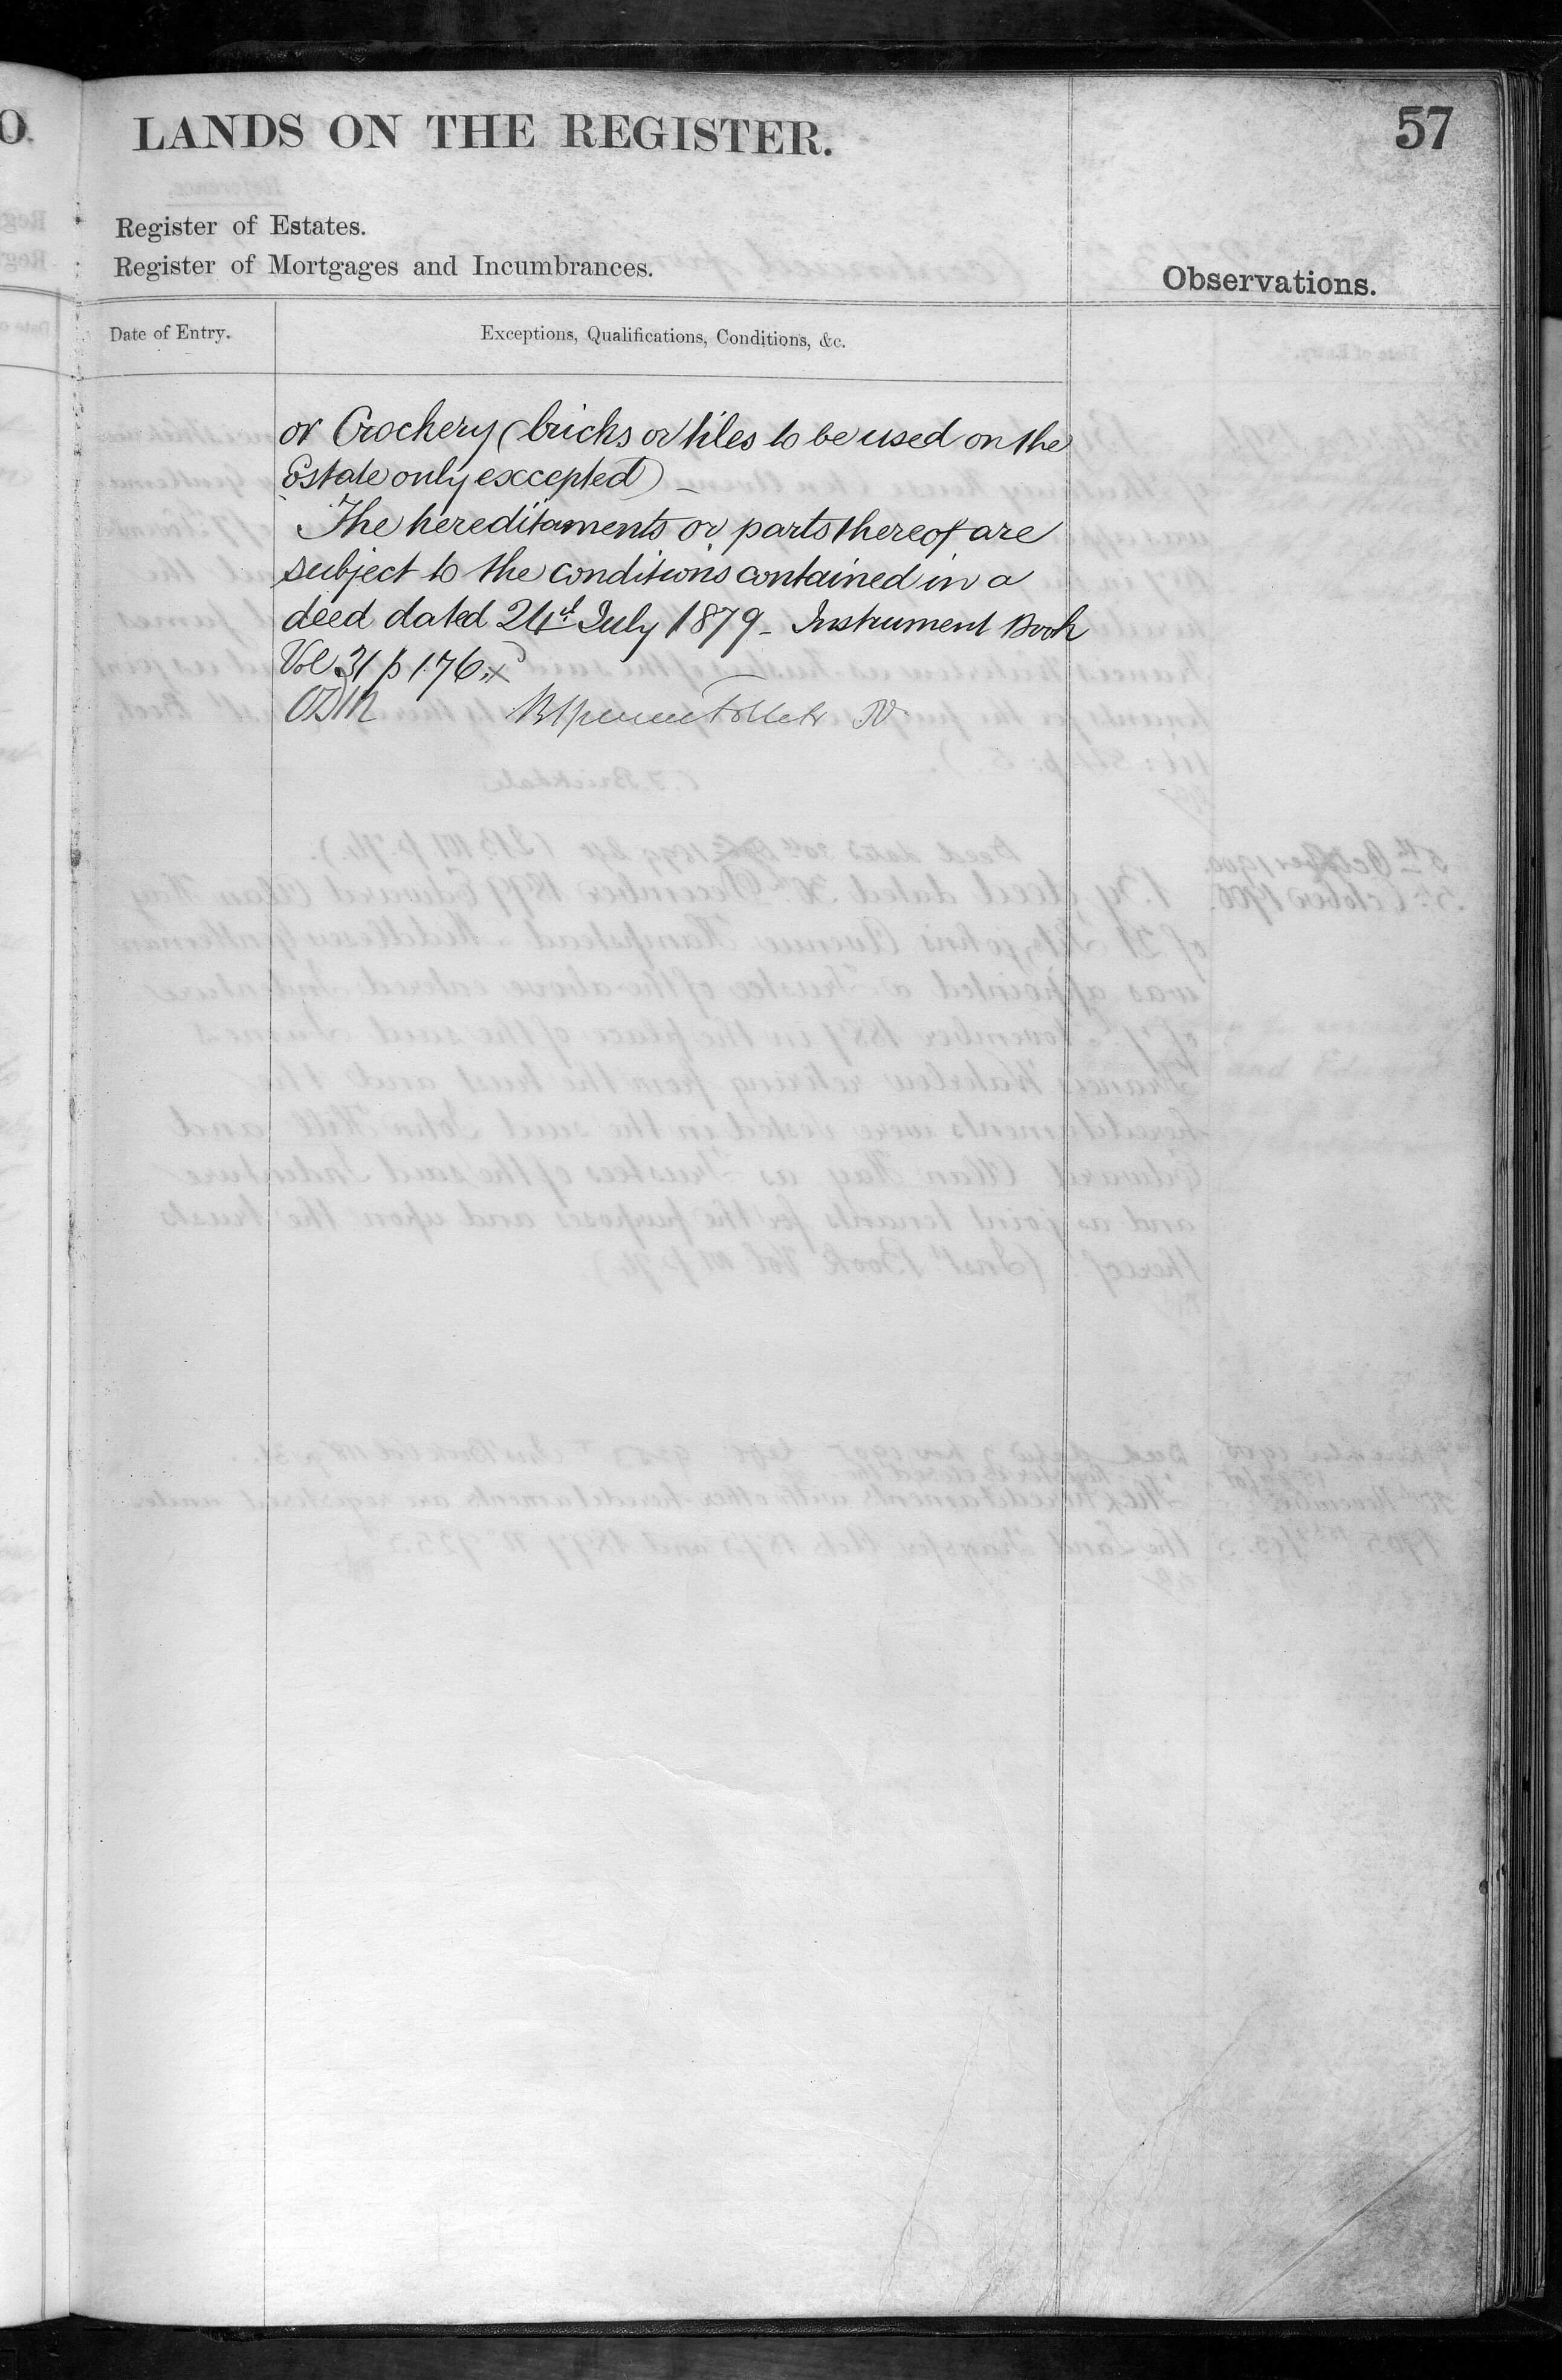 LANDS ON THE REGISTER.
57
Register of Estates.
Register of Mortgages and Incumbrances.
Observations.
Date of Entry.
Exceptions, Qualifications, Conditions, &c.
or Crockery (bricks or tiles to be used on the
Estate only excepted) –
The hereditaments or parts thereof are
subject to the conditions contained in a
deed dated 21st July 1879 – Instrument Book
Vol 31 p 176. x